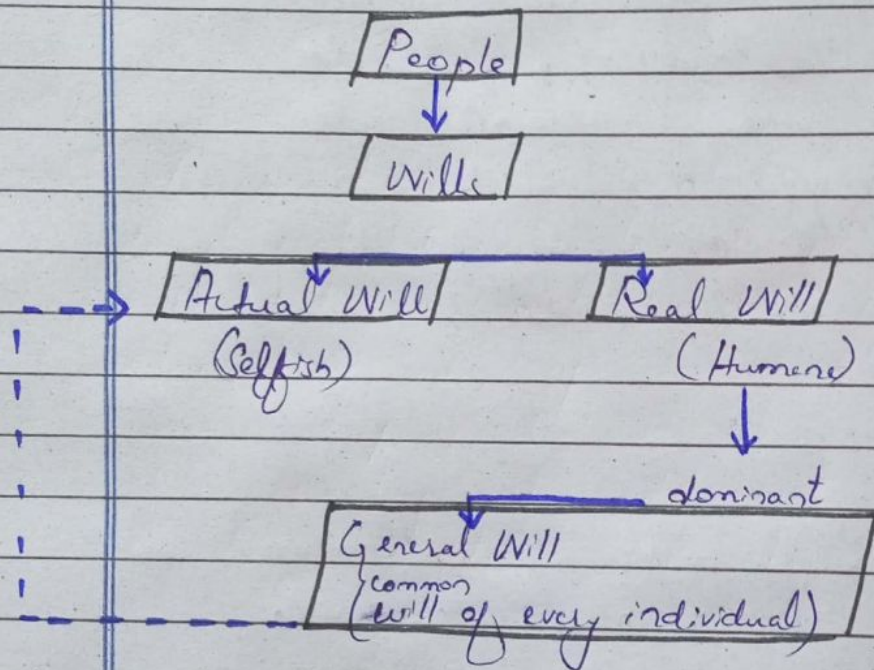 People
Wills
Actual Will
Real Will
(Selfish)
(Humane)
dominant
General Will
common
(will of every individual)